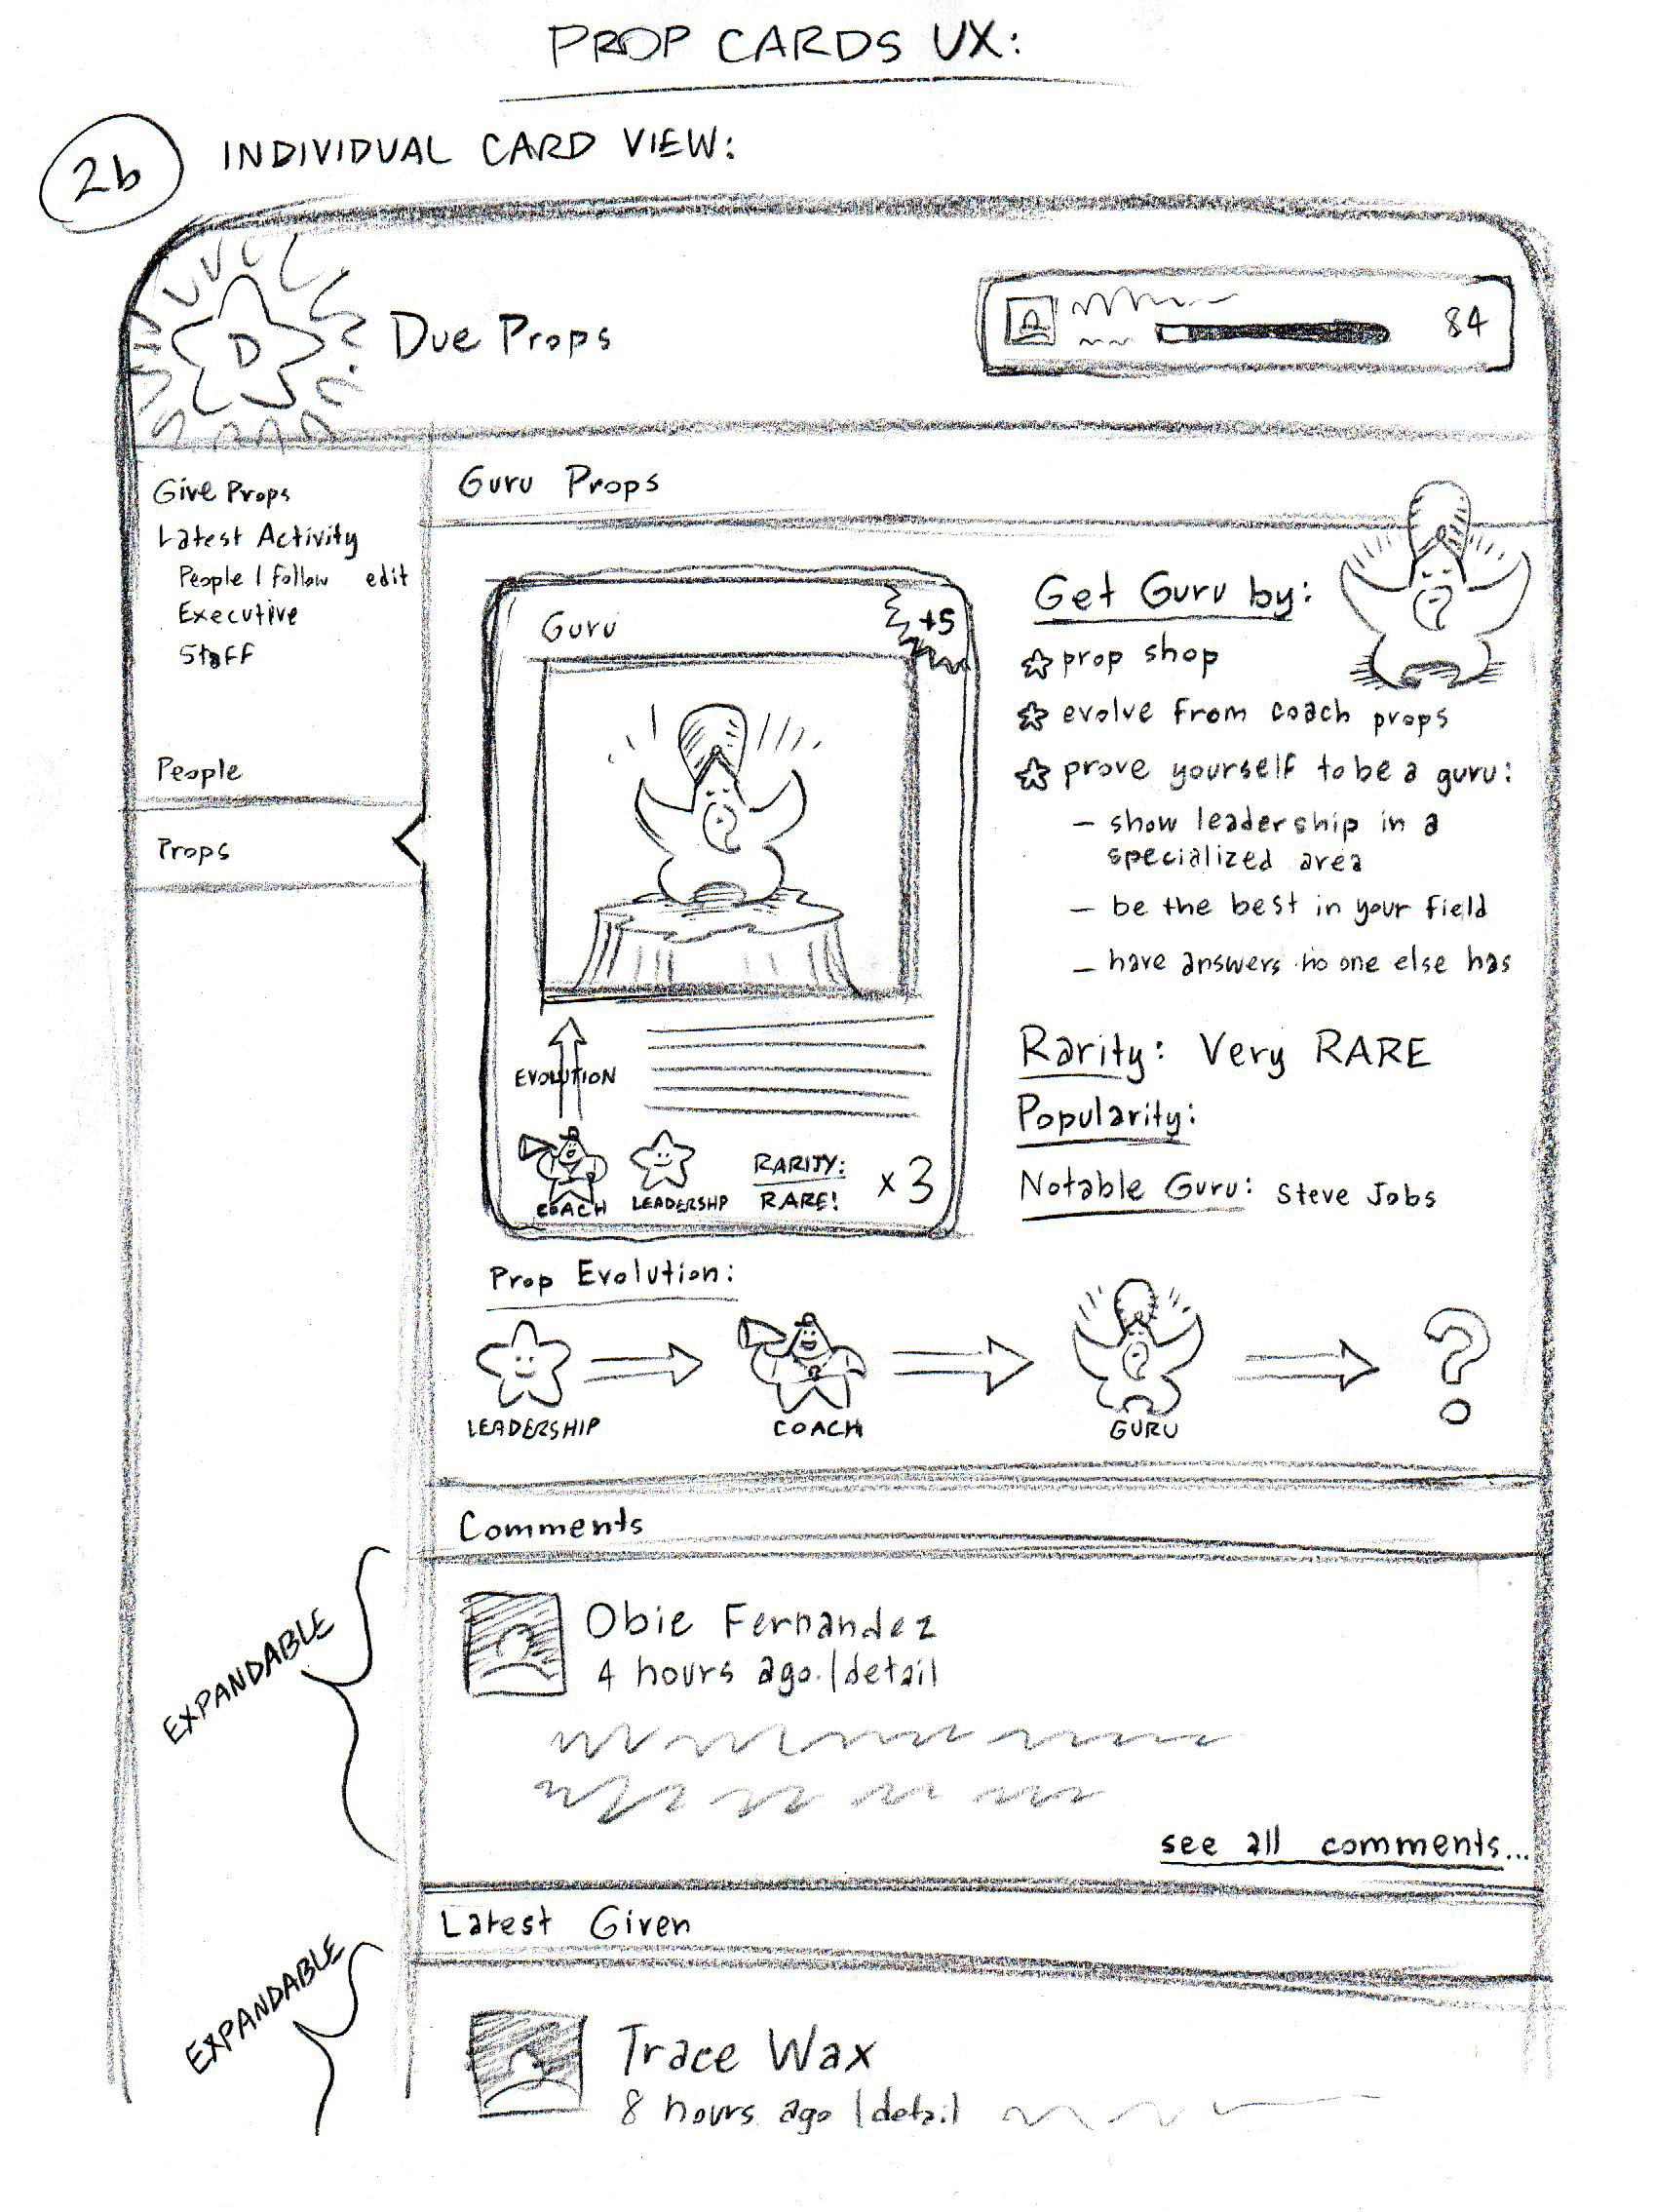 PROP CARDS UX:
2b
INDIVIDUAL CARD VIEW:
D
Due Props
84
Give Props
Latest Activity
People I Follow edit
Executive
Staff
People
Props
Guru Props
Guru
+5
EVOLUTION
COACH
LEADERSHIP
RARITY:
RARE!
x3
Get Guru by:
prop shop
evolve from coach props
prove yourself to be a guru:
- show leadership in a
specialized area
- be the best in your field
- have answers no one else has
Rarity: Very RARE
Popularity:
Notable Guru: Steve Jobs
Prop Evolution:
LEADERSHIP
COACH
GURU
?
Comments
EXPANDABLE
Obie Fernandez
4 hours ago. | detail
see all comments...
Latest Given
EXPANDABLE
Trace Wax
8 hours ago | detail